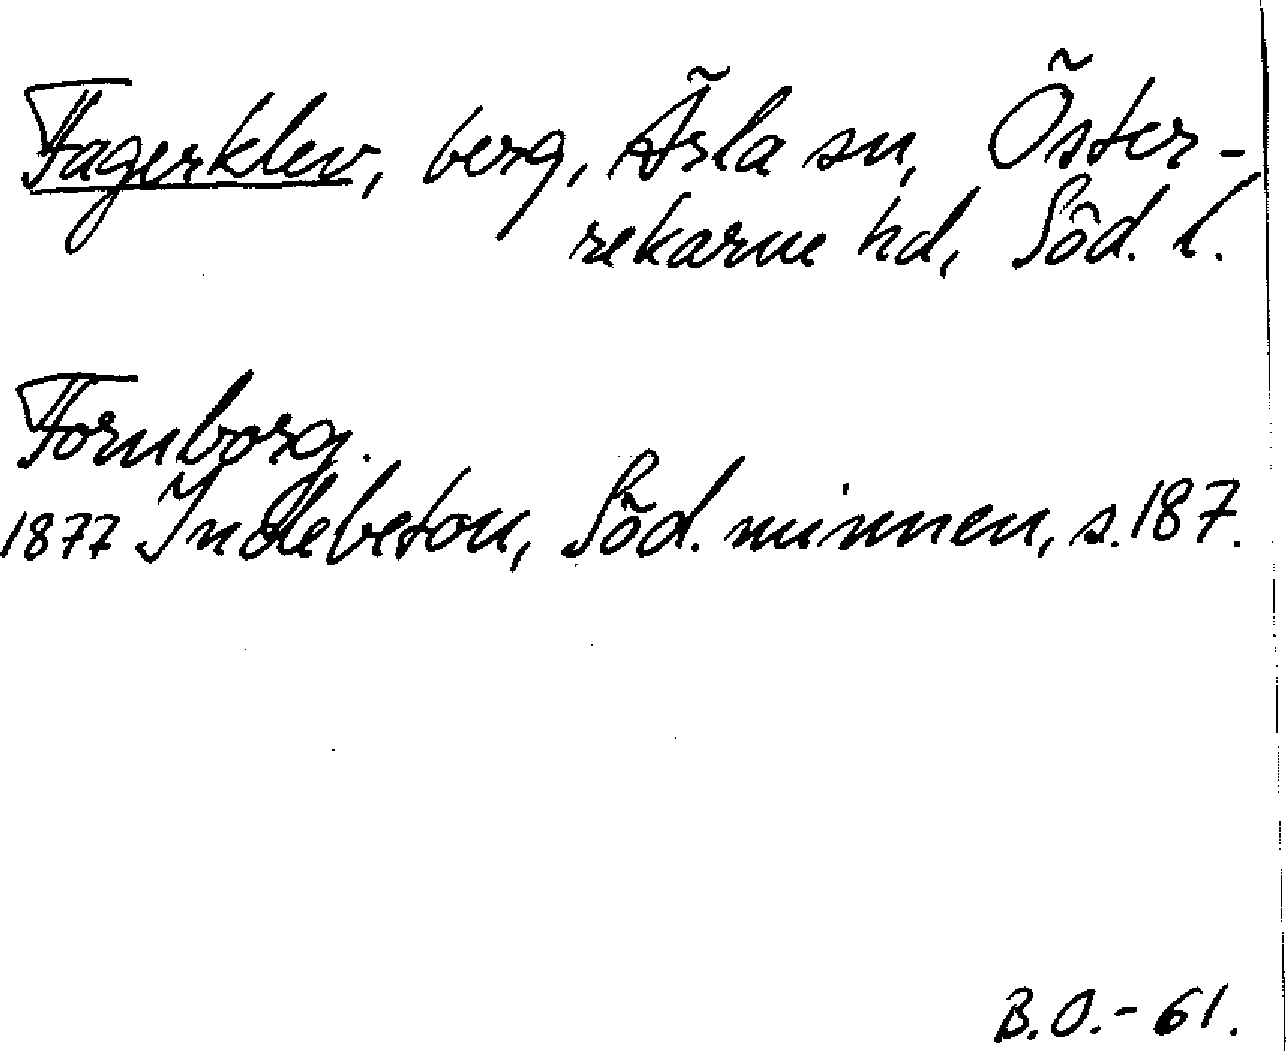 Fagerklev, berg, Ärla sn, Öster-
rekarne hd, Söd. l.
Fornborg.
1877 Indebetou, Söd. minnen, s. 187.
B.O.-61.